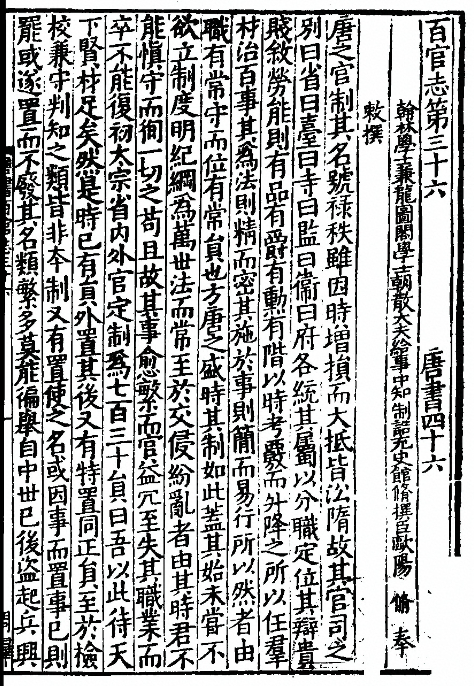 百官志第三十六　唐書四十六
翰林學士兼龍圖閣學士朝散大夫給事中知制誥充史館脩撰臣歐陽脩奉
敕撰
唐之官制其名號祿秩雖因時增損而大抵皆㳂隋故其官司之
別曰省曰臺曰寺曰監曰衞曰府各統其屬以分職定位其辯貴
賤敘勞能則有品有爵有勳有階以時考覈而升降之所以任羣
材治百事其爲法則精而密其施於事則簡而易行所以然者由
職有常守而位有常員也方唐之盛時其制如此蓋其始未嘗不
欲立制度明紀綱爲萬世法而常至於交侵紛亂者由其時君不
能愼守而徇一切之苟且故其事愈繁而官益冗至失其職業而
卒不能復初太宗省內外官定制爲七百三十員曰吾以此待天
下賢材足矣然是時已有員外置其後又有特置同正員至於檢
校兼守判知之類皆非本制又有置使之名或因事而置事已則
罷或遂置而不廢其名類繁多莫能徧舉自中世已後盜起兵興